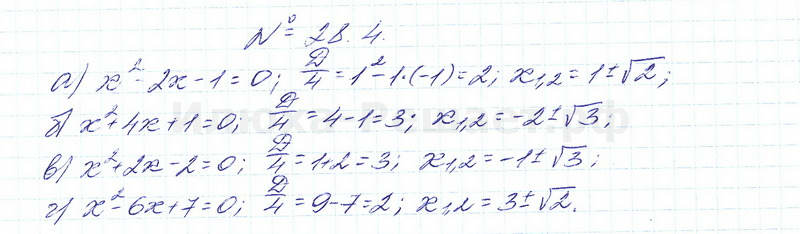 № 28.4.
а) x² - 2x - 1 = 0; D/4 = 1² - 1·(-1) = 2; x₁,₂ = 1 ± √2;
б) x² + 4x + 1 = 0; D/4 = 4 - 1 = 3; x₁,₂ = -2 ± √3;
в) x² + 2x - 2 = 0; D/4 = 1 + 2 = 3; x₁,₂ = -1 ± √3;
г) x² - 6x + 7 = 0; D/4 = 9 - 7 = 2; x₁,₂ = 3 ± √2.